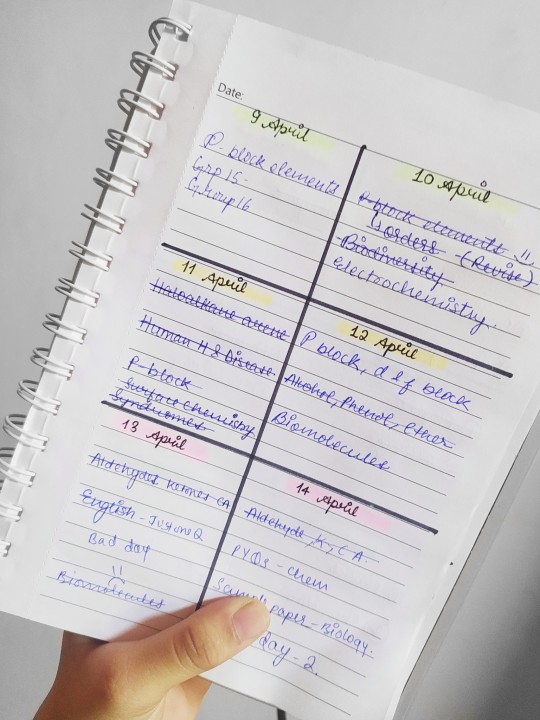 Date:
9 April
P. block elements
Grp 15.
Group 16
10 April
P-block elements
orders (Revise)
Biodiversity
Electrochemistry.
11 April
Haloalkane arene
Human H & Disease
P-block
Surface Chemistry
Syndromes
12 April
P block, d & f block
Alcohol, Phenol, Ether
Biomolecules
13 April
Aldehydes Ketones CA
English - Just one Q
Bad day
Biomolecules
14 April
Aldehyde, K, C A.
PYQs - chem
Sample paper - Biology.
day - 2.